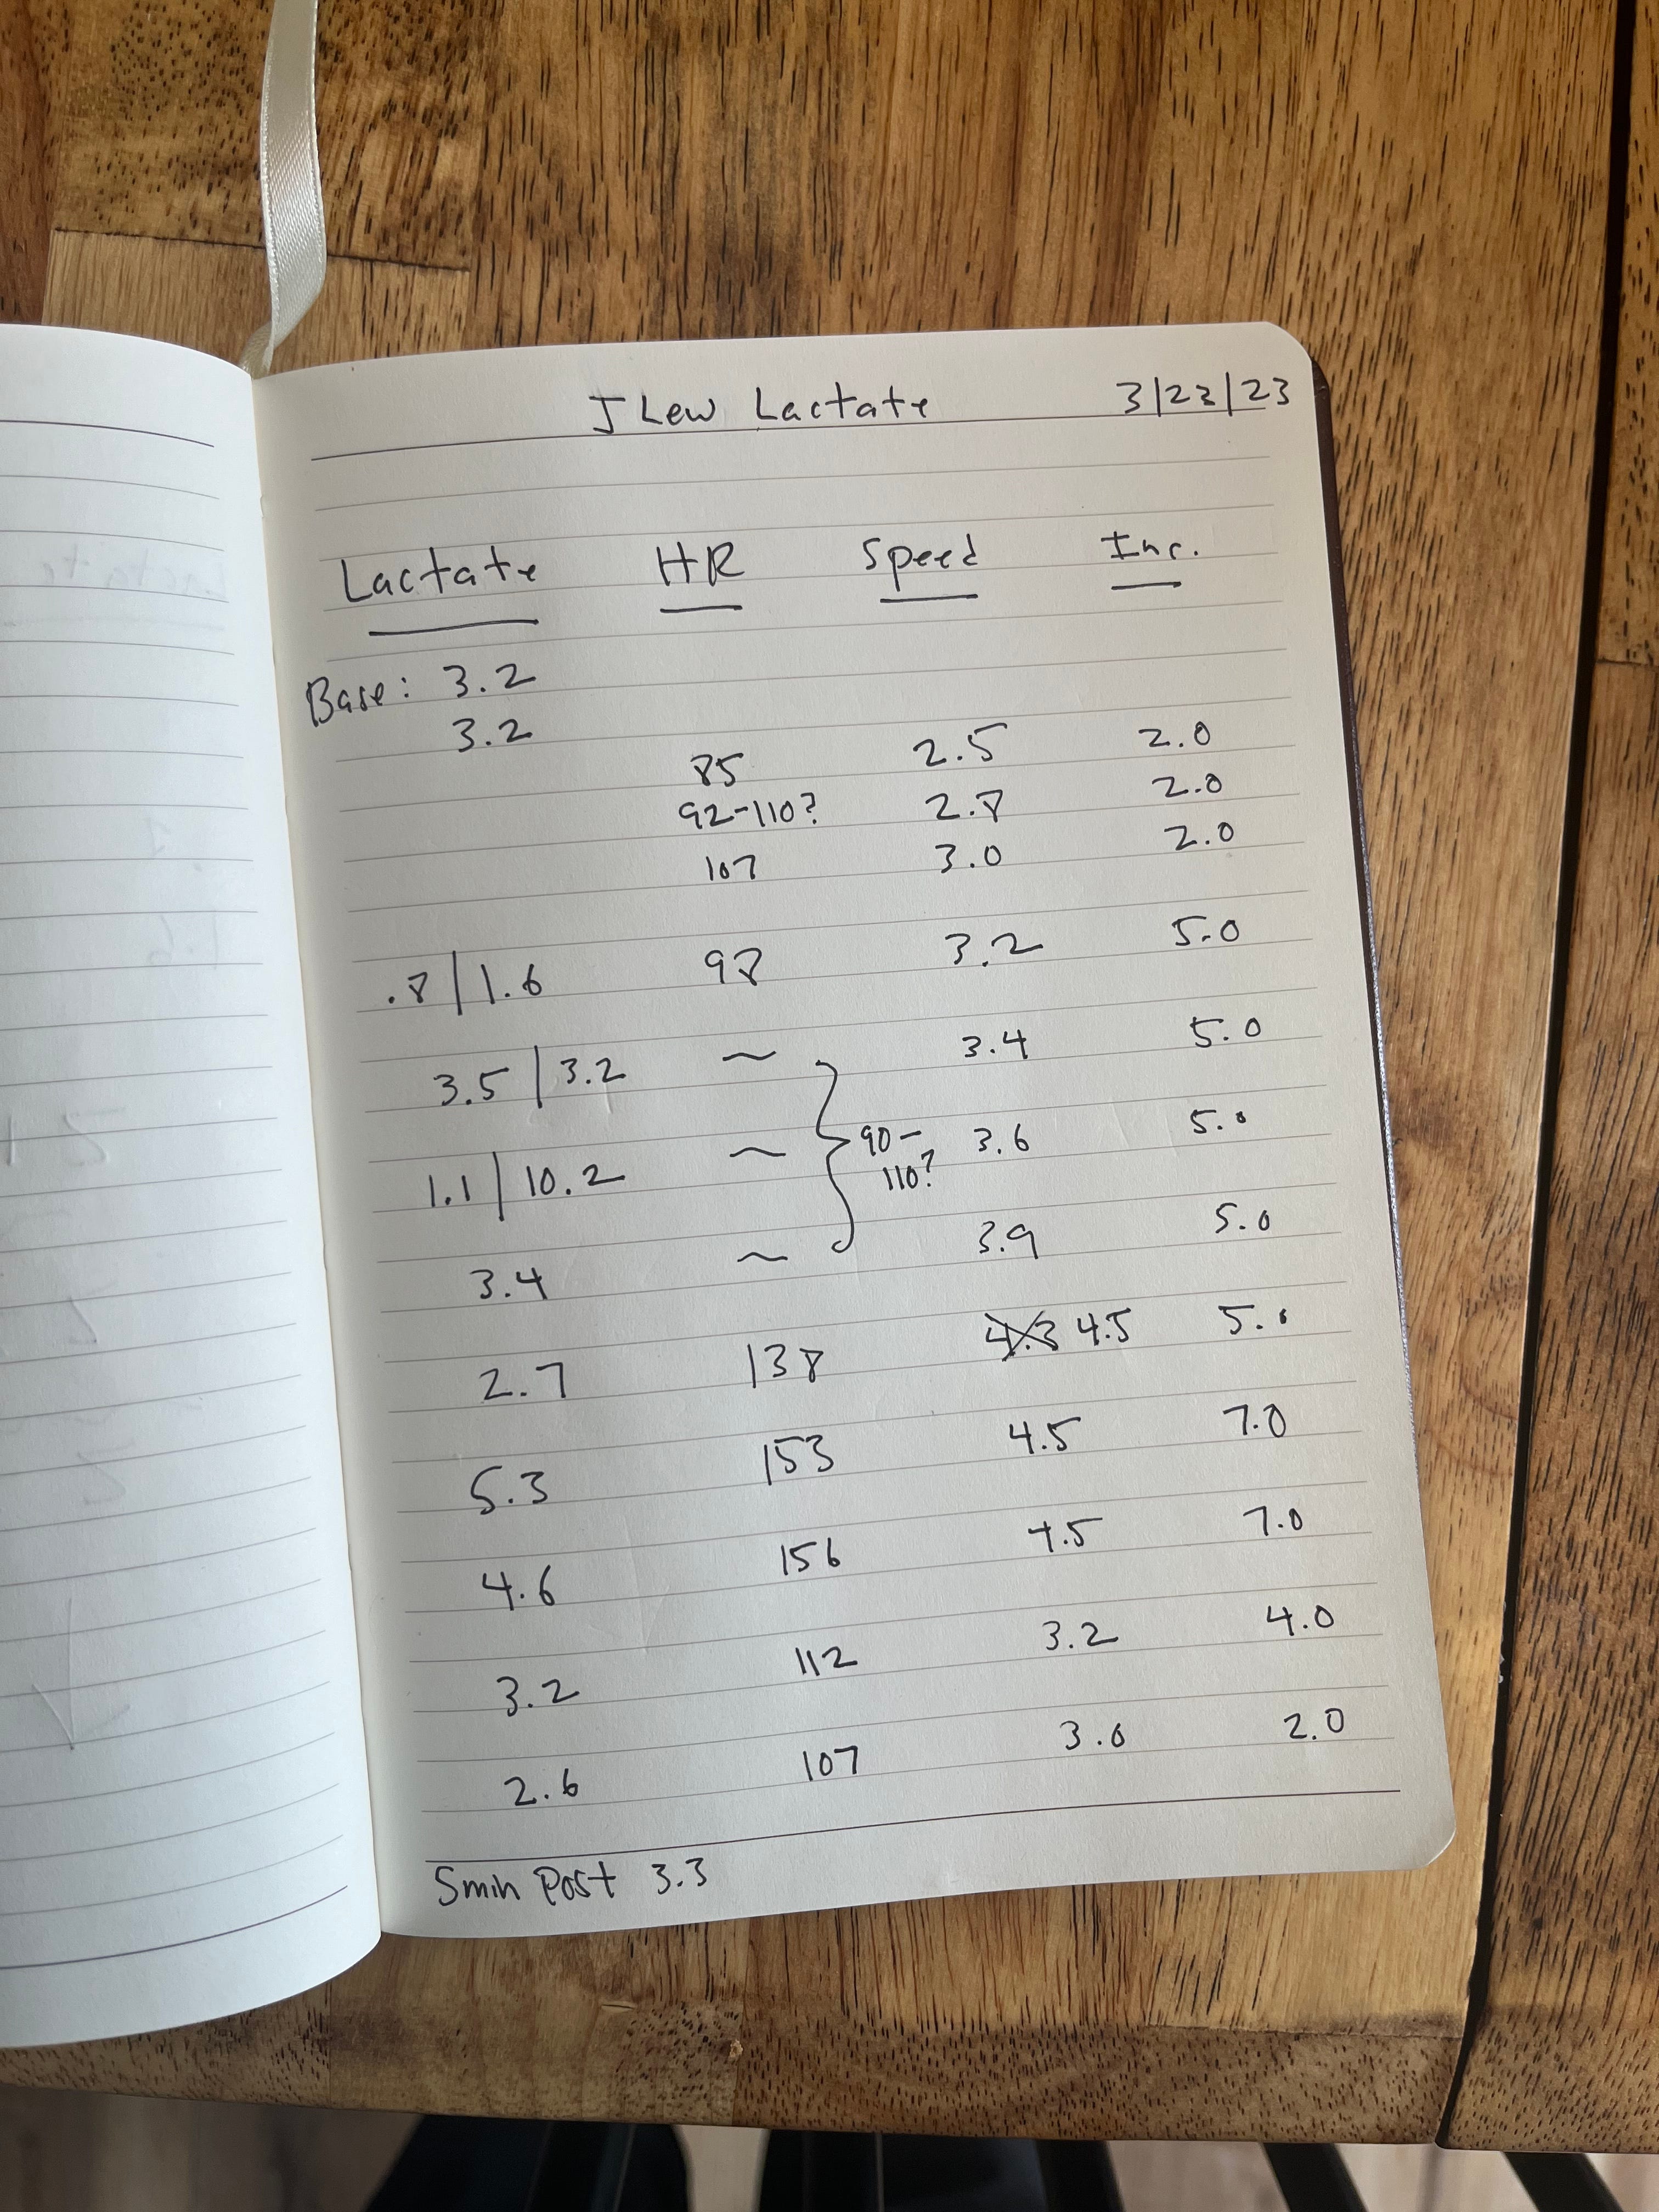 J Lew Lactate 3/23/23
Lactate HR Speed Inc.
Base: 3.2
3.2
85 2.5 2.0
92-110? 2.8 2.0
107 3.0 2.0
.8 | 1.6 98 3.2 5.0
3.5 | 3.2 ~ 3.4 5.0
1.1 | 10.2 ~ } 90-110? 3.6 5.0
3.4 ~ 3.9 5.0
2.7 138 4.3 4.5 5.0
5.3 153 4.5 7.0
4.6 156 4.5 7.0
3.2 112 3.2 4.0
2.6 107 3.0 2.0
5min Post 3.3